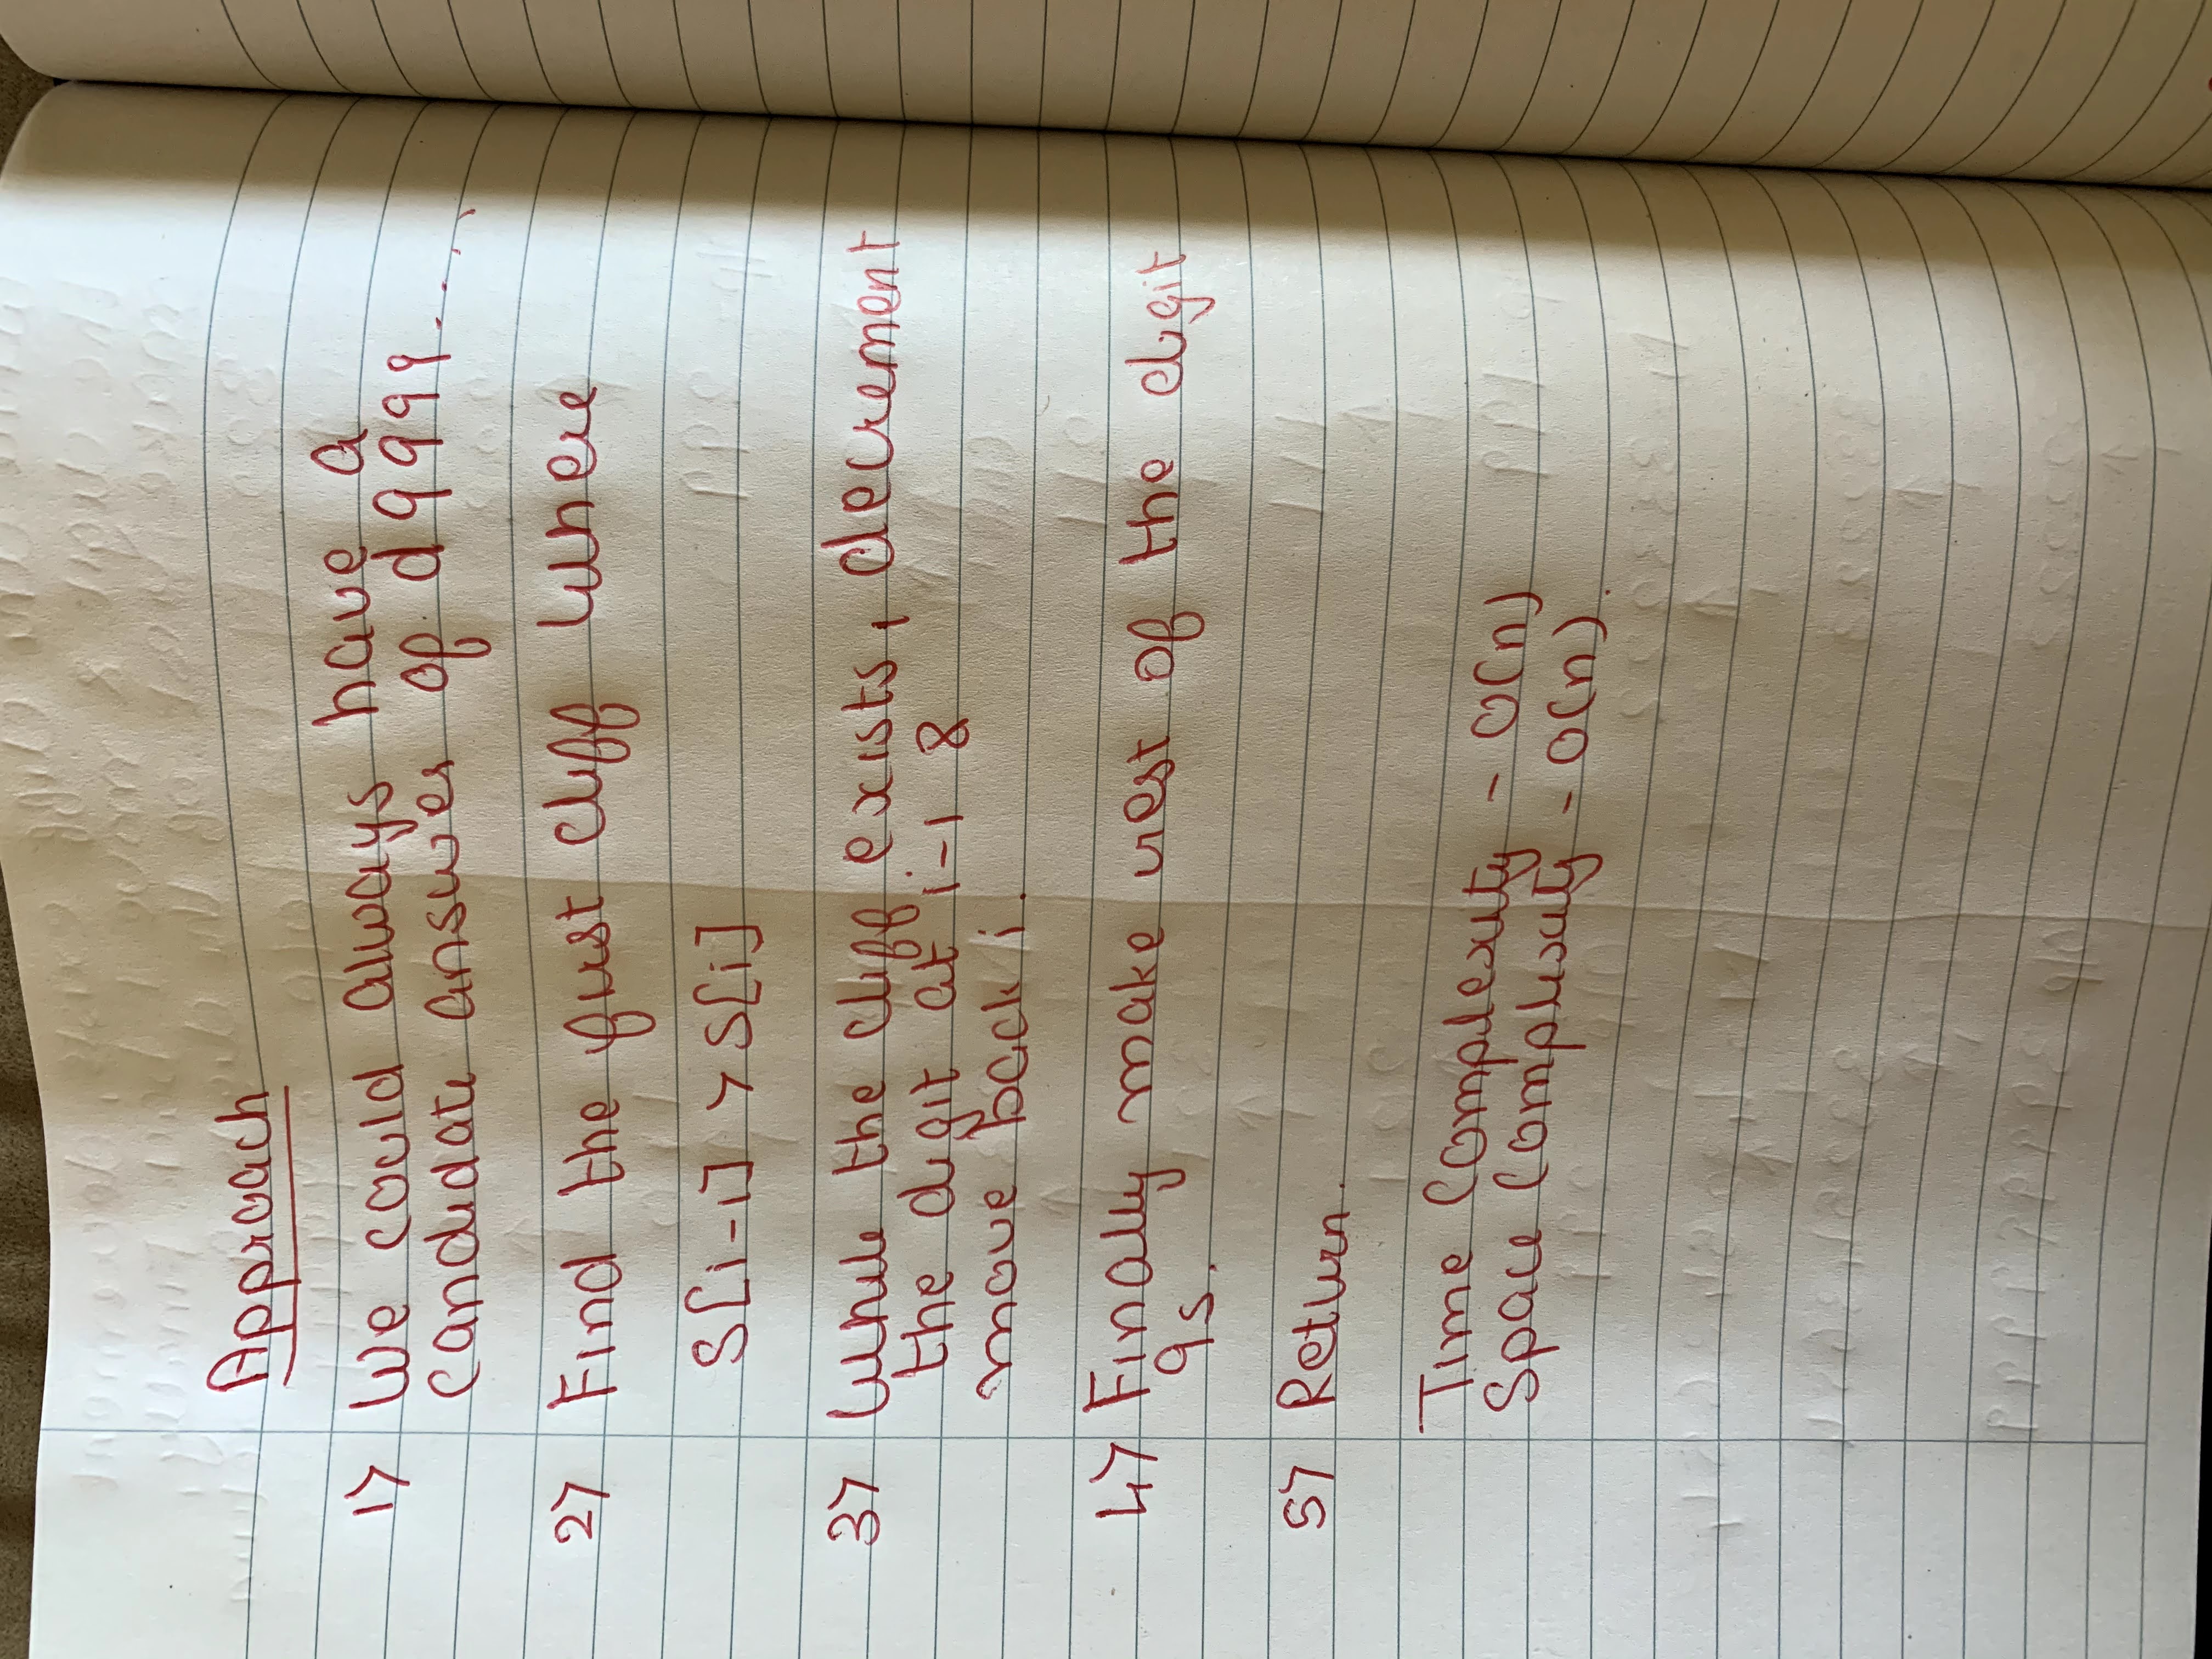 Approach
1> We could always have a
candidate answer of d999....
2> Find the first cliff where
S[i-1] > S[i]
3> While the cliff exists, decrement
the digit at i-1 &
move back i.
4> Finally make rest of the digit
9s.
5> Return.
Time Complexity - O(n)
Space Complexity - O(n).